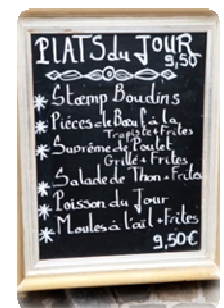 PLATS du JOUR
9,50
Stoemp Boudins
Pièces de Bœuf à la
Trapiste + Frites
Suprême de Poulet
Grillé + Frites
Salade de Thon + Frites
Poisson du Jour
Moules à l'ail + Frites
9,50€